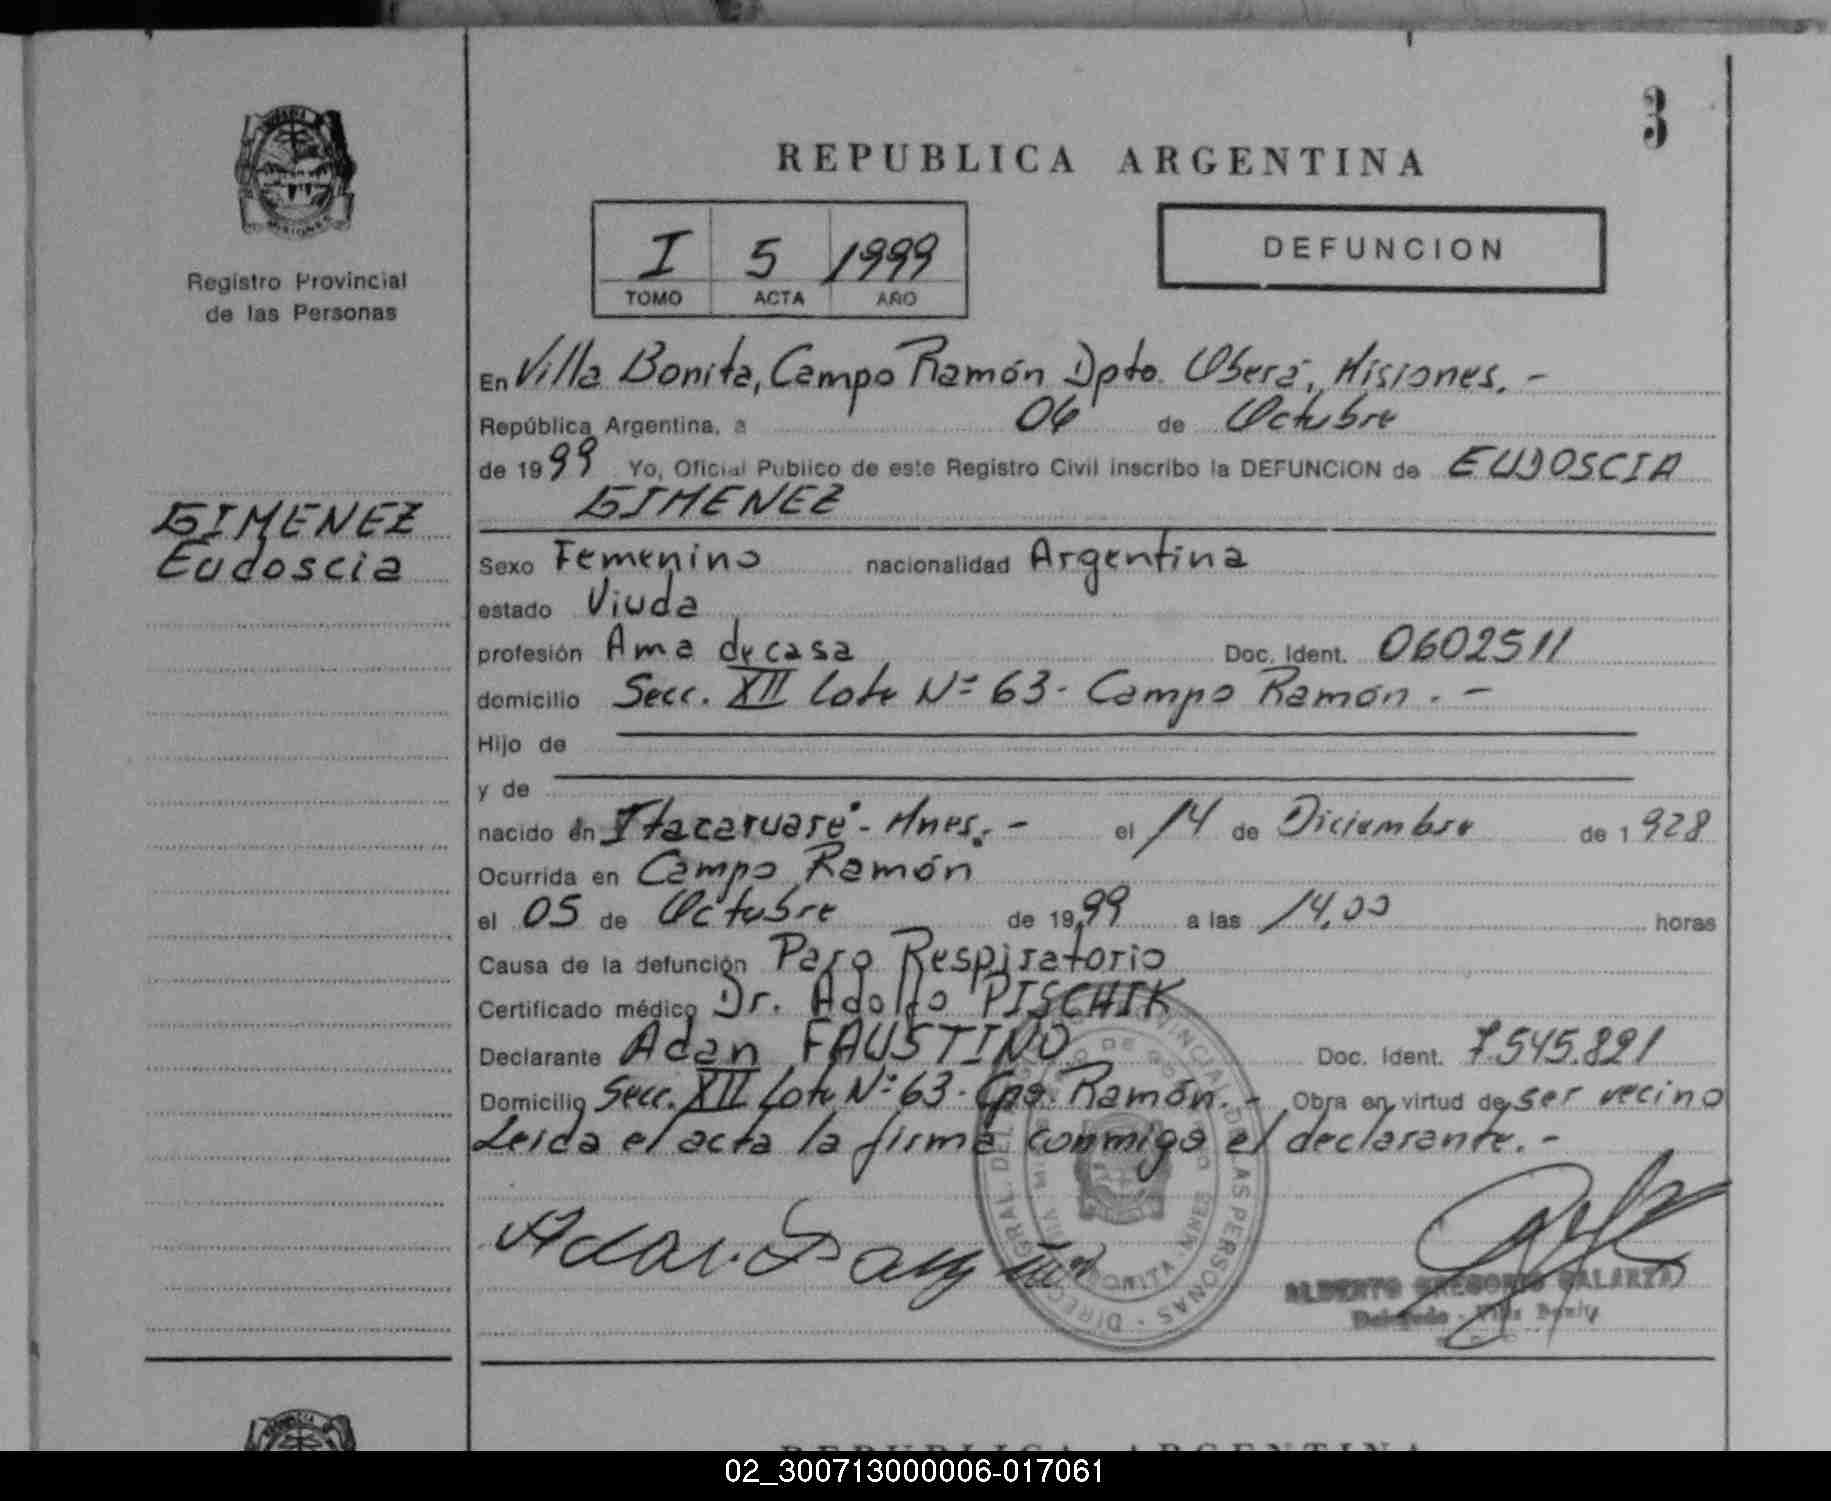 3
REPUBLICA ARGENTINA
I 5 1999
TOMO ACTA AÑO
DEFUNCION
Registro Provincial
de las Personas
GIMENEZ
Eudoscia
En Villa Bonita, Campo Ramón Dpto. Oberá, Misiones. -
República Argentina, a 06 de Octubre
de 1999 Yo, Oficial Publico de este Registro Civil inscribo la DEFUNCION de EUDOSCIA
GIMENEZ
Sexo Femenino nacionalidad Argentina
estado Viuda
profesión Ama de casa Doc. Ident. 0602511
domicilio Secc. XII Lote Nº 63 - Campo Ramón. -
Hijo de
y de
nacido en Itacaruaré - Mnes. - el 14 de Diciembre de 1928
Ocurrida en Campo Ramón
el 05 de Octubre de 1999 a las 14,00 horas
Causa de la defunción Paro Respiratorio
Certificado médico Dr. Adolfo PISCHIK
Declarante Adan FAUSTINO Doc. Ident. 7.545.821
Domicilio Secc. XII Lote Nº 63 - Cpo. Ramón. - Obra en virtud de ser vecino
Leida el acta la firma conmigo el declarante. -
ALBERTO GREGORIO GALARZA
Delegado - Villa Bonita
02_300713000006-017061